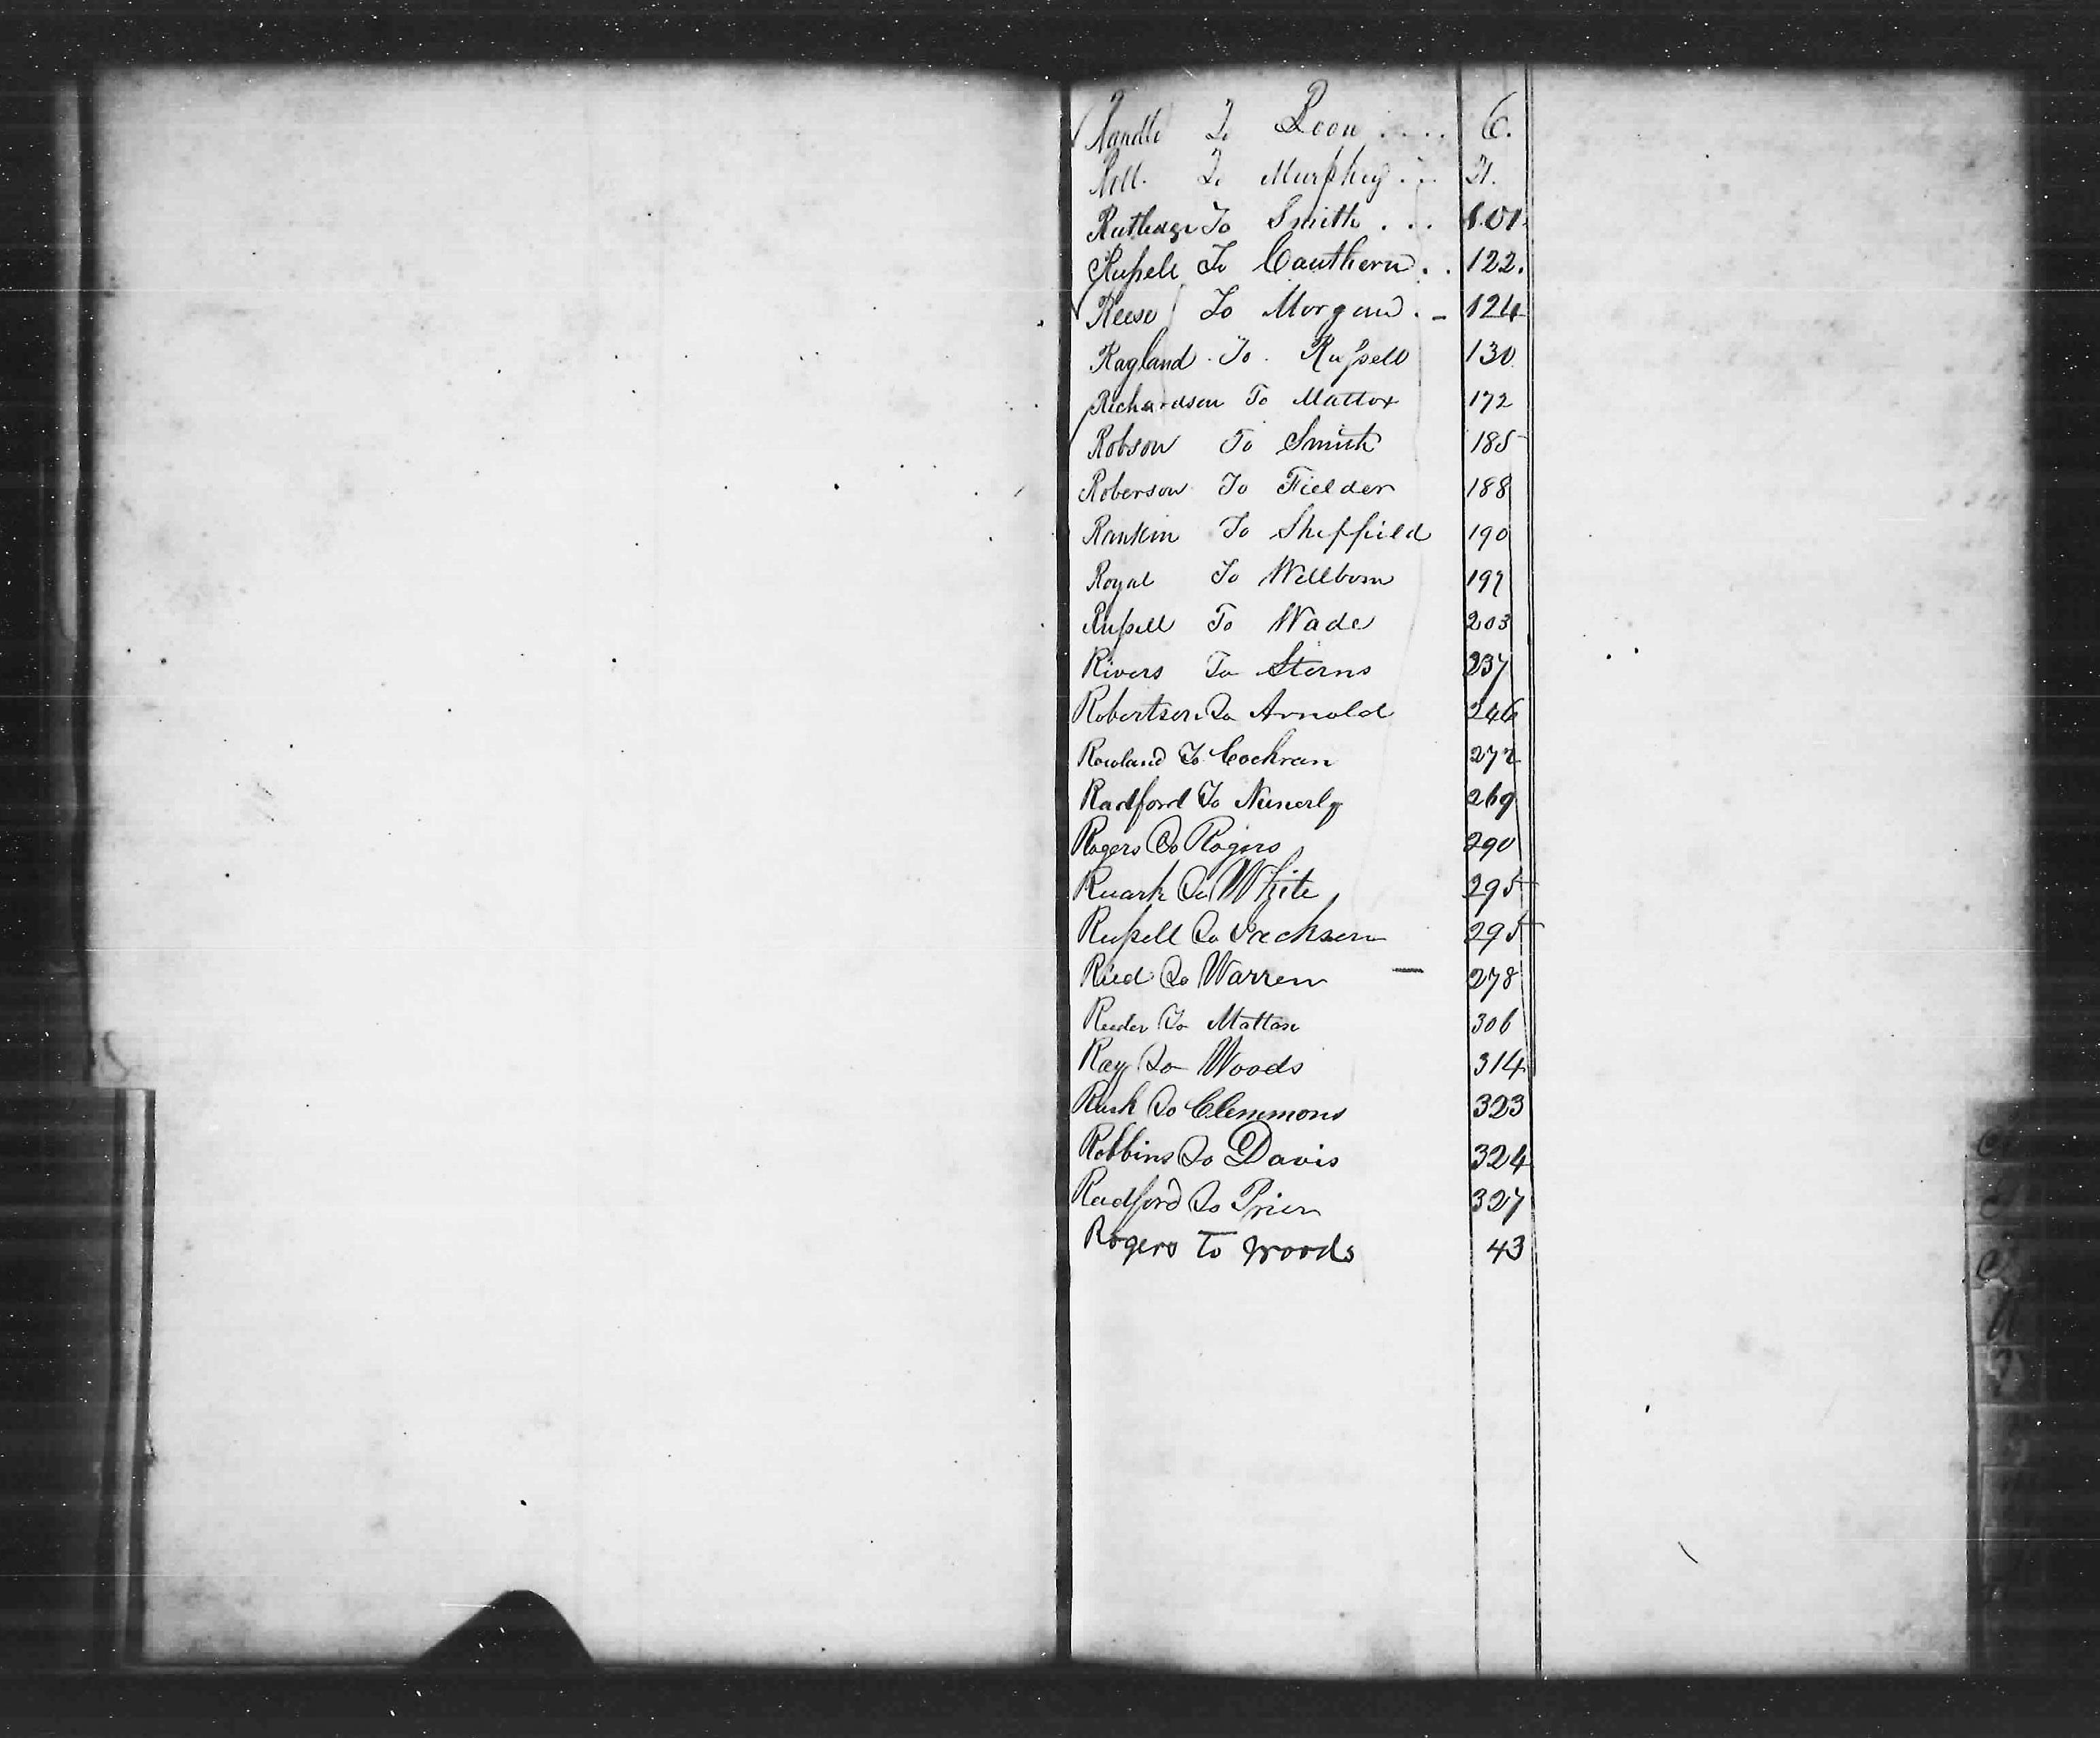 Randle To Leon .... 6.
To Murphey ... 21.
Rutledge To Smith ... 101.
Russell To Cauthern .. 122.
Reese To Morgan . - 124
Ragland . To . Russell 130
Richardson To Mattox 172
Robson To Smith 185
Roberson To Fielder 188
Rankin To Sheffield 190
Royal To Wellborn 197
Russell To Wade 203
Rivers To Sterns 237
Robertson To Arnold 246
Rowland To Cochran 272
Radford To Nunerly 269
Rogers To Rogers 290
Ruark To White 295
Russell To Jackson 295
Ried To Warren — 278
Reeder To Mattox 306
Ray To Woods 314
Rusk To Clemmons 323
Robbins To Davis 324
Radford To Prier 327
Rogers To Woods 43